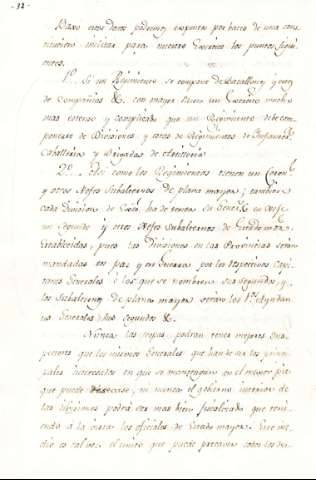 - 32 -
Baxo estos datos podemos exponer por bases de una cons-
titucion militar para nuestro Exercito los puntos siguien-
entes.
1º Si un Regimiento se compone de Batallones y estos
de Compañias &c. con mayor razon un Exercito mucho
mas extenso y complicado que un Regimiento debe com-
ponerse de Divisiones y estas de Regimientos de Infanteria
Caballeria y Brigadas de Artilleria
2º Asi como los Regimientos tienen un Coronel
y otros Xefes Subalternos de plana mayor; tambien
cada Division de ha de tener su General en Xefe
un Segundo y otros Xefes Subalternos de Estado mayor
Establecidos, pues las divisiones en las Provincias seran
mandadas en paz y en Guerra por los respectivos Capi-
tanes Generales ó los que se nombren sus segundos, y
los Subalternos de plana mayor seran los
Generales sus segundos &c.
Nunca las tropas podran tener mejores Ins-
pectores que los mismos Generales que han de ser los princi-
pales interesados en que se mantengan en el mejor pie
que puede desearse, ni nunca el gobierno interior de
las divisiones podrá ser mas bien fiscalizado que tenien-
endo á la vista los oficiales de Estado mayor. Este me-
dio es tal vez el unico que puede precaver todos los de-